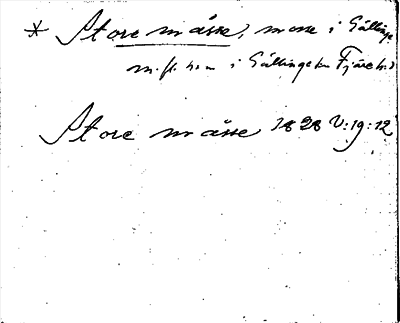 * Store måsse, mosse i Gällinge
m. fl. hem i Gällinge sn Fjäre hd
Store måsse 1828 V:19:12